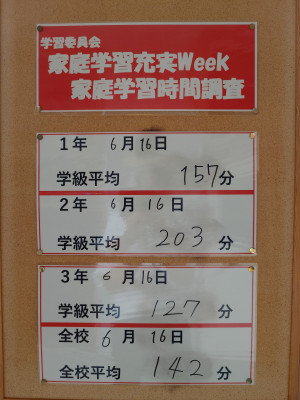 学習委員会
家庭学習充実Week
家庭学習時間調査
1年 6月16日
学級平均 157分
2年 6月16日
学級平均 203分
3年 6月16日
学級平均 127分
全校 6月16日
全校平均 142分